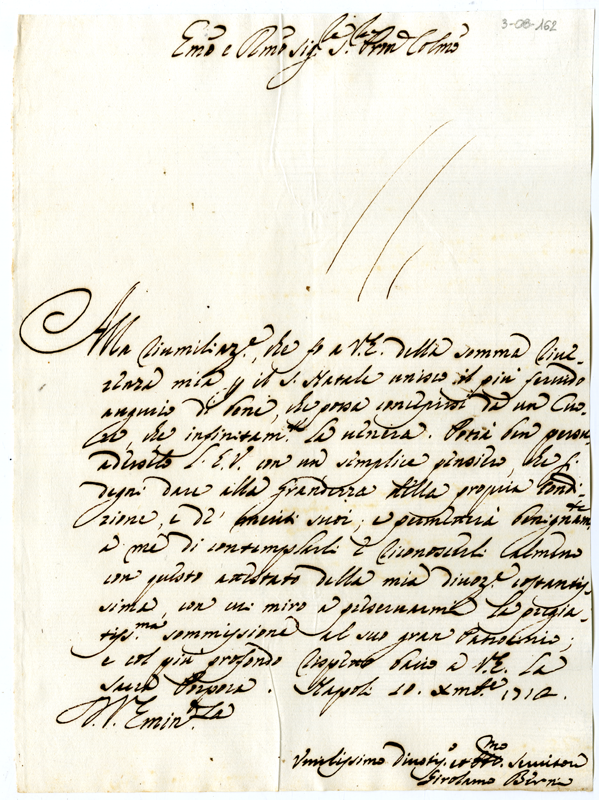 3-08-162
Emo e Rmo Sig.re S.re Pron Colmo
Alla riumiliaz.e, che fo a V.E. della somma rive-
renza mia p il S. Natale unisco il più fervido
augurio di bene, che possa concepirsi da un Cuo-
re, che infinitam.te la venera. Potrà ben persua
L'E.V. con un semplice pensiero, che si
degni dare alla grandezza della propria Condi-
zione, e de' meriti suoi; e permetterà benignam.te
a me di contemplarli e riconoscerli almeno
con questo attestato della mia divoz.e costantis-
sima, con cui miro a preservarmi la pregia-
tiss.ma sommissione al suo gran Patrocinio;
e col più profondo rispetto bacio a V.E. la
Sacra Porpora. Napoli 10. Xmb.e
V. Emin.za
Umilissimo Divotiss.o et Obb.mo Servitore
Girolamo